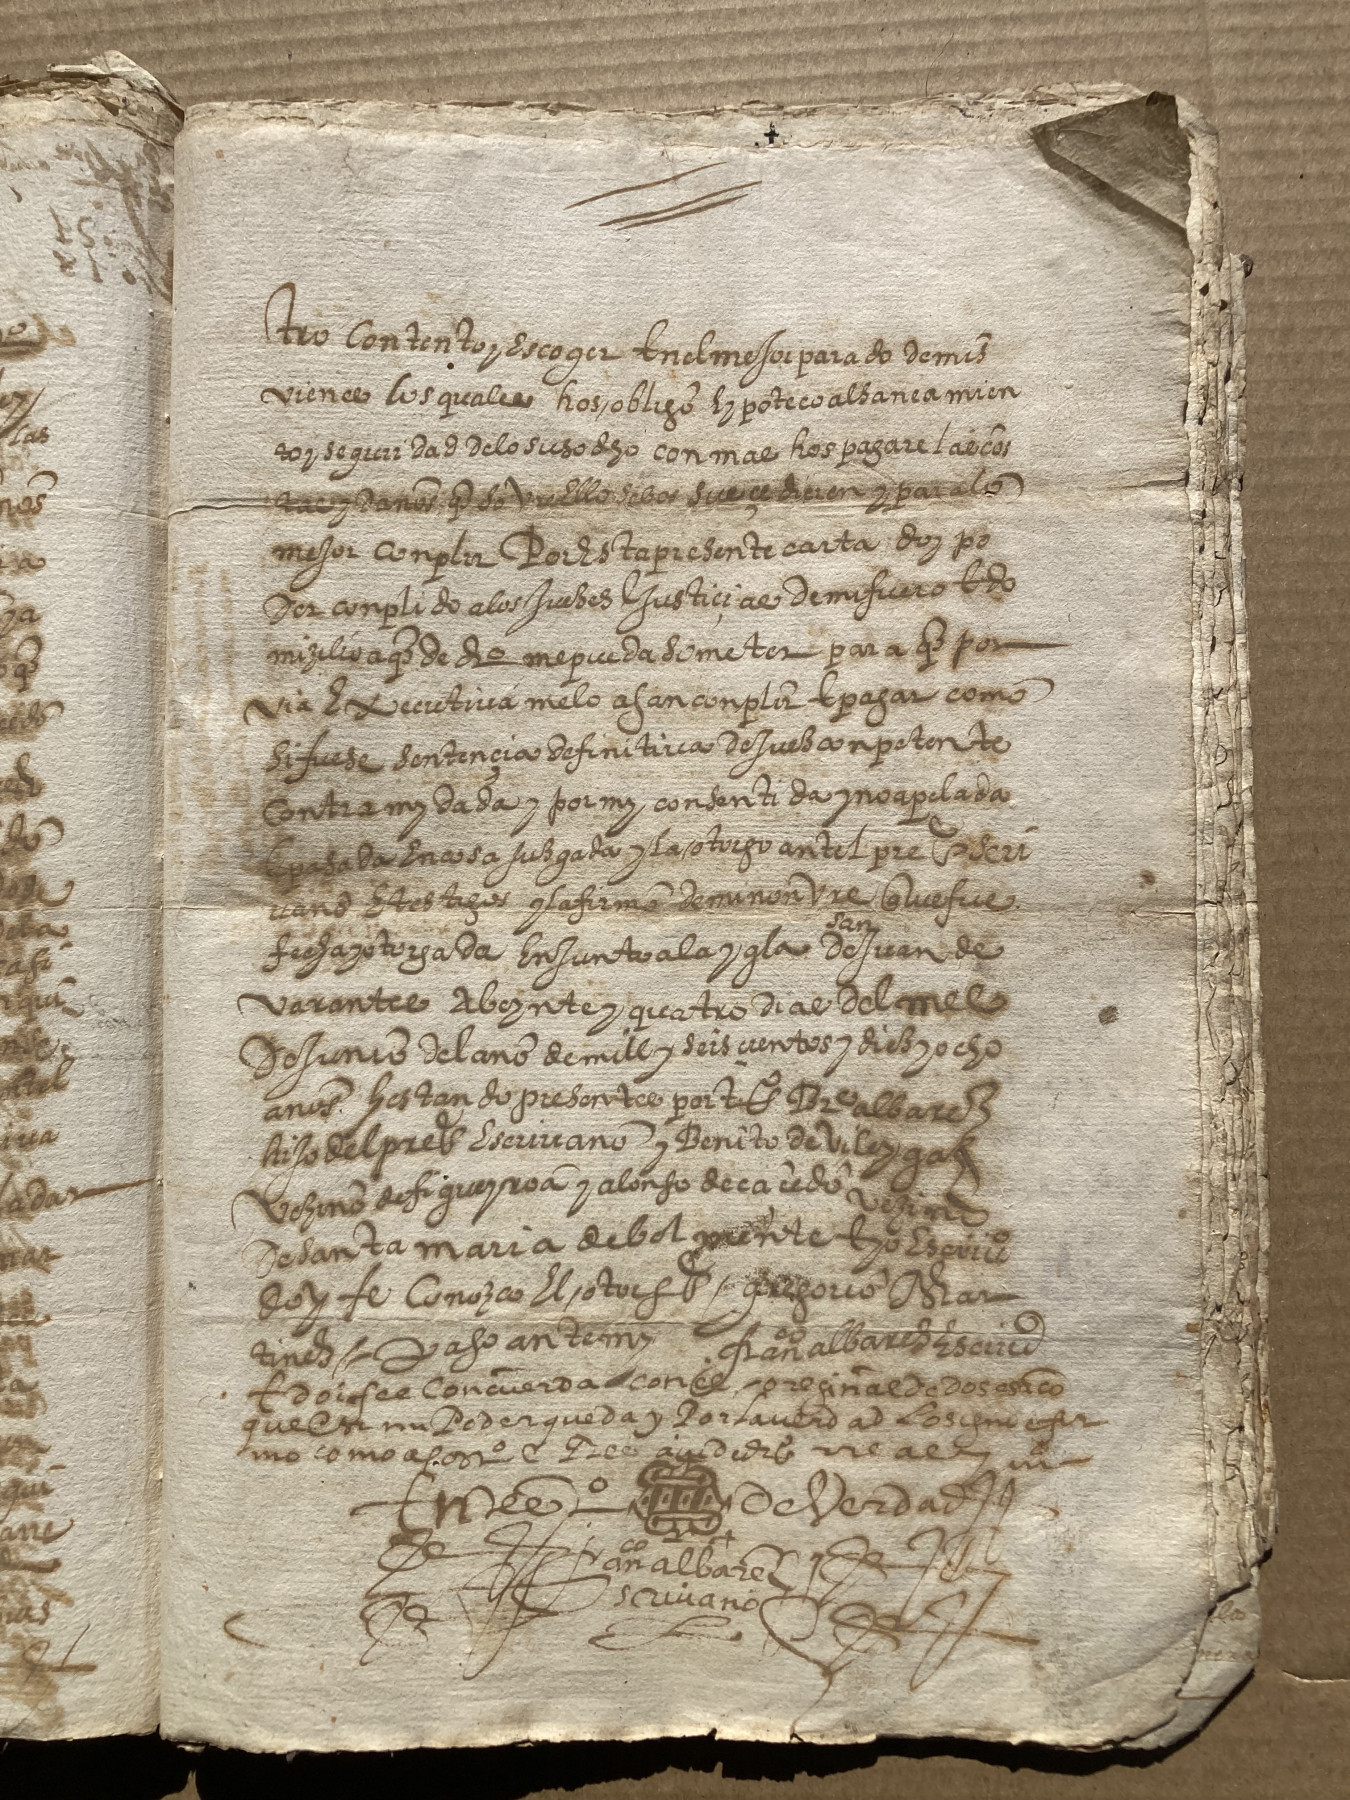 tro contento y escoger en el mejor parado de mis
vienes los quales hos obligo hypoteco al saneamien
to y seguridad de lo suso dho con mas hos pagare las cos
tas y daños q̃ so vre ello se bos suçedieren y para lo
mejor conplir Por esta presente carta doy po
der conplido a los Juezes e Justiçias de mi fuero e do
miçilio a q̃ de dro me pueda someter para q̃ por
via executiva me lo agan conplir e pagar como
si fuese sentençia definitiva de Juez conpetente
contra my dada y por my consentida y no apelada
e pasada en cosa Juzgada y la otorgo ante el preste Escri
uano e testigos y la firmo de mi nonvre que fue
fecha y otorgada en Junto a la ygla de san Juan de
varantes a beynte y quatro dias del mes
de Junio del año de mill y seiscientos y diez y ocho
años hestando presentes por ts Bre albarez
hijo del preste Escriuano y Benito de
vezino de figueyroa y alonso de vezino
de santa maria de bel e yo Escriuo
doy fe conozco el otorgte gregorio Mar
tinez Paso ante my franco albarez Escriuo
e doi fee concuerda con el oreginal de dos
que en mi Poder queda y Por la verdad lo signe e fir
mo como
En tesno de Verdad
franco albarez
scriuano